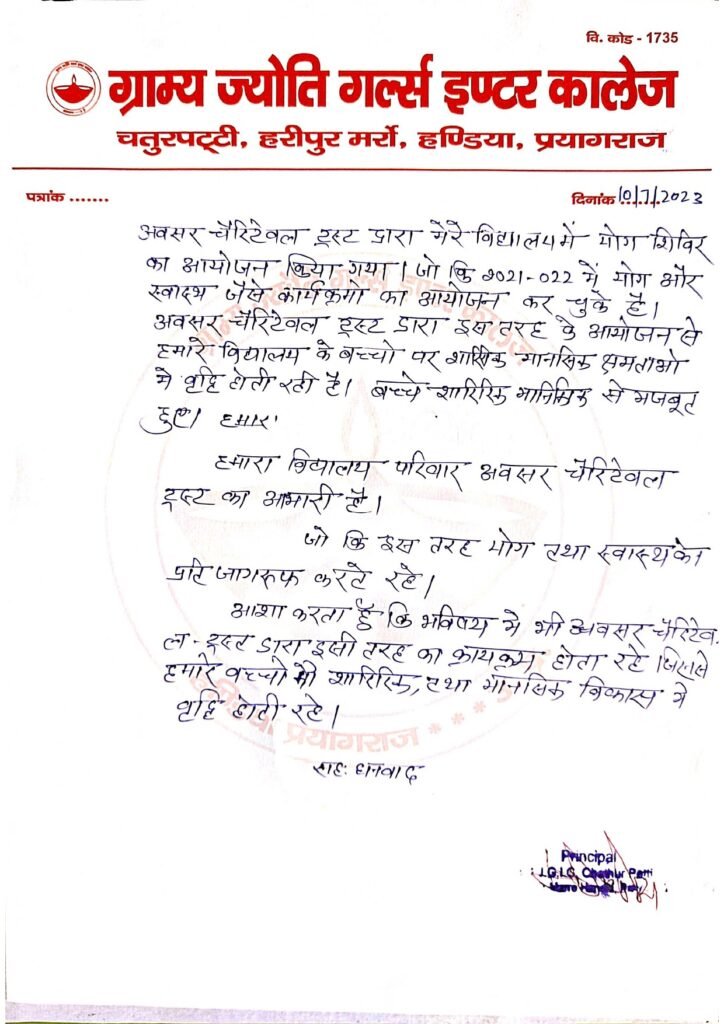 वि. कोड - 1735
ग्राम्य ज्योति गर्ल्स इण्टर कालेज
चतुरपट्टी, हरीपुर मर्रो, हण्डिया, प्रयागराज
पत्रांक .......
दिनांक 10/7/2023
अवसर चैरिटेवल ट्रस्ट द्वारा मेरे विद्यालय में योग शिविर
का आयोजन किया गया। जो कि 2021-022 में योग और
स्वास्थ जैसे कार्यक्रमो का आयोजन कर चुके है।
अवसर चैरिटेवल ट्रस्ट द्वारा इस तरह के आयोजन से
हमारे विद्यालय के बच्चो पर मानसिक क्षमताओ
मे वृद्दि होती रही है। बच्चे शारिरिक मानसिक से मजबूत
हुए। हमार
हमारा विद्यालय परिवार अवसर चैरिटेवल
ट्रस्ट का आभारी है।
जो कि इस तरह योग तथा स्वास्थ के
प्रति जागरूक करते रहे।
आशा करता हूँ कि भविषय मे भी अवसर चैरिटेव
ल - ट्रस्ट द्वारा इसी तरह का कार्यक्रम होता रहे जिससे
हमारे बच्चो मे शारिरिक, तथा मानसिक विकास मे
वृद्दि होती रहे।
सह: धनवाद
Principal
Chathur Patti
प्रयागराज ***